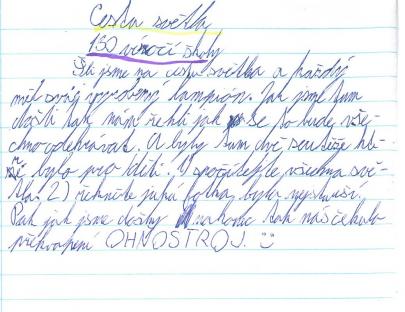 Cesta světla
150 výročí školy
Šli jsme na cestu světla a každý
měl svůj vyrobený lampión. Jak jsme tam
došli tak nám řekli jak se to bude vše-
chno odehrávat. A byly tam dvě soutěže kte-
ré bylo pro děti. 1) spočítejte všechna svě-
tla. 2) řekněte jaká fotka byla nejhezčí.
Pak jak jsme došly nakonec tak nás čekalo
překvapení OHNOSTROJ. :)